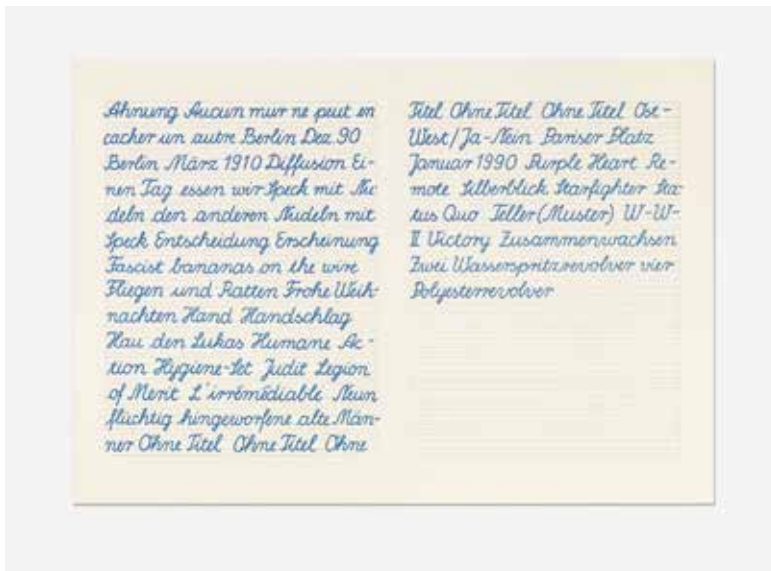 Ahnung Aucun mur ne peut en
cacher un autre Berlin Dez. 90
Berlin März 1910 Diffusion Ei-
nen Tag essen wir Speck mit Nu
deln den anderen Nudeln mit
Speck Entscheidung Erscheinung
Fascist bananas on the wire
Fliegen und Ratten Frohe Weih-
nachten Hand Handschlag
Hau den Lukas Humane Ac-
tion Hygiene-Set Judit Legion
of Merit L'irrémédiable Neun
flüchtig hingeworfene alte Män-
ner Ohne Titel Ohne Titel Ohne
Titel Ohne Titel Ohne Titel Ost-
West/Ja-Nein Pariser Platz
Januar 1990 Purple Heart Re-
mote Silberblick Starfighter Sta
tus Quo Teller (Muster) W-W-
II Victory Zusammenwachsen
Zwei Wasserspritzrevolver vier
Polyesterrevolver